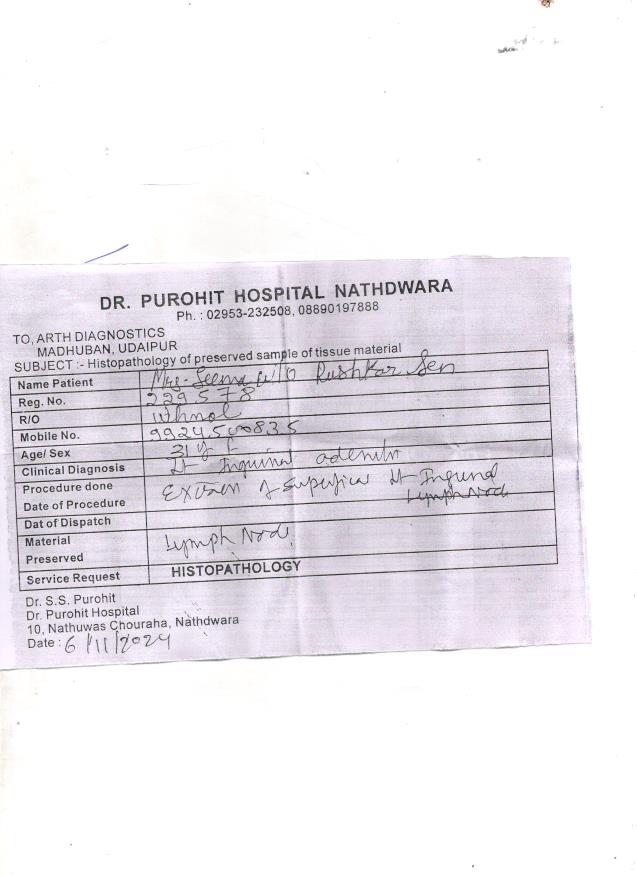 DR. PUROHIT HOSPITAL NATHDWARA
Ph. : 02953-232508, 08890197888
TO, ARTH DIAGNOSTICS
MADHUBAN, UDAIPUR
SUBJECT :- Histopathology of preserved sample of tissue material
Name Patient Mrs. Seema w/o Pushkar Sen
Reg. No. 229578
R/O
Mobile No. 9924500835
Age/ Sex 31 y F
Clinical Diagnosis Lt Inguinal
Procedure done Excision of Superficial Lt Inguinal
Date of Procedure Lymph Node
Dat of Dispatch
Material Lymph Node
Preserved
Service Request HISTOPATHOLOGY
Dr. S.S. Purohit
Dr. Purohit Hospital
10, Nathuwas Chouraha, Nathdwara
Date : 6/11/2024